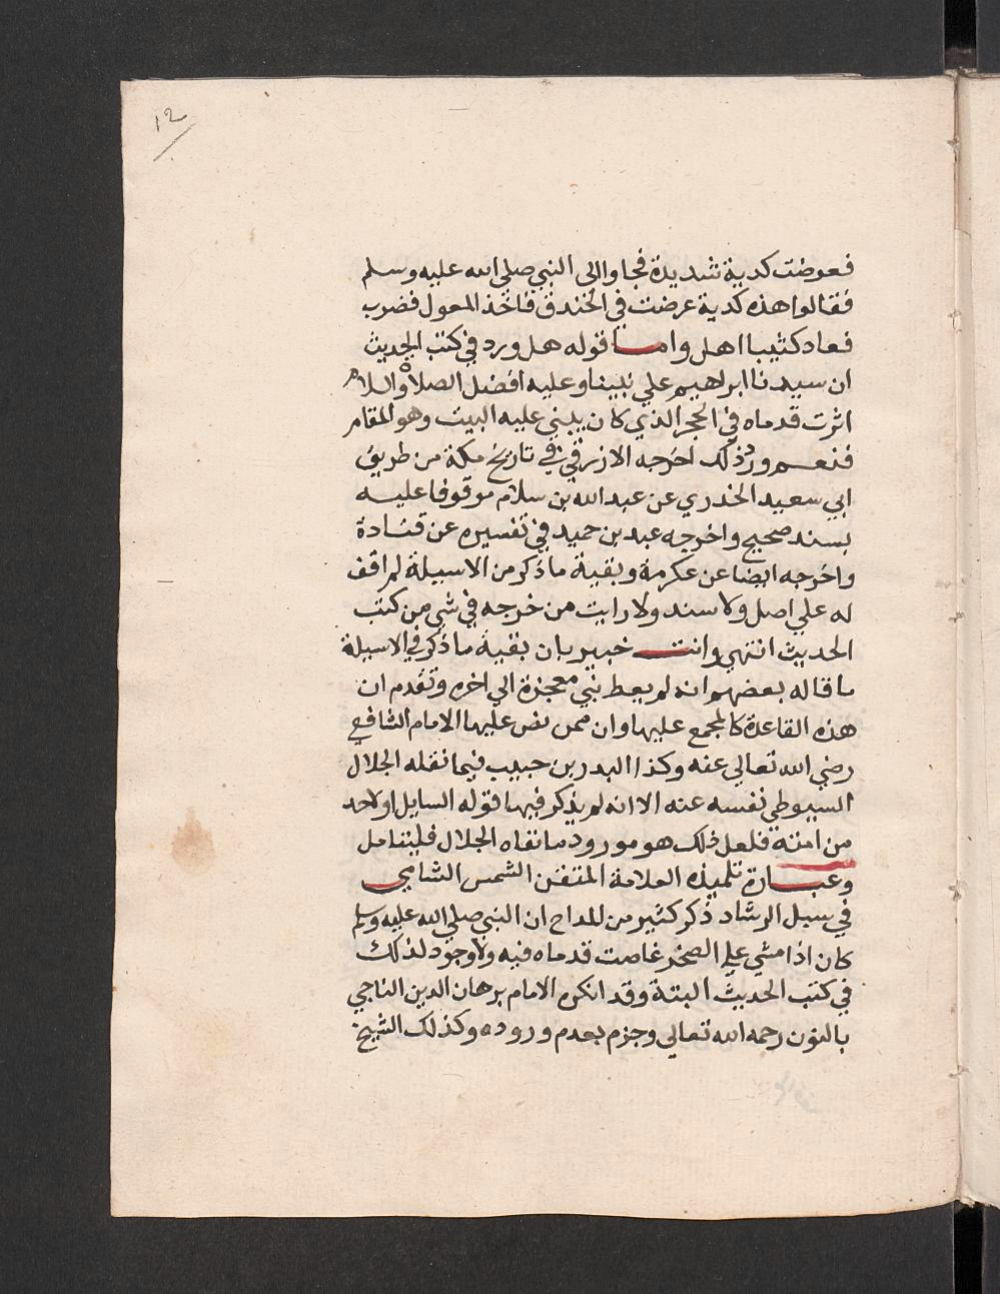 12
فعرضت كدية شديدة فجاوا الي النبي صلي الله عليه وسلم
فقالوا هذه كدية عرضت في الخندق فاخذ المعول فضرب
فعاد كثيبا اهل واما قوله هل ورد في كتب الحديث
ان سيدنا ابراهيم علي نبينا وعليه افضل الصلاة والسلام
اثرت قدماه في الحجر الذي كان يبني عليه البيت وهو المقام
فنعم ورد ذلك اخرجه الازرقي في تاريخ مكة من طريق
ابي سعيد الخدري عن عبد الله بن سلام موقوفا عليه
بسند صحيح واخرجه عبد بن حميد في تفسيره عن قتادة
واخرجه ايضا عن عكرمة وبقية ما ذكر من الاسيلة لم اقف
له علي اصل ولا سند ولا رايت من خرجه في شي من كتب
الحديث انتهي وانت خبير بان بقية ما ذكر في الاسيلة
ما قاله بعضهم انه لم يعط نبي معجزة الي اخره وتقدم ان
هذه القاعدة كالمجمع عليها وان ممن نص عليها الامام الشافعي
رضي الله تعالي عنه وكذا البدر بن حبيب فيما نقله الجلال
السيوطي نفسه عنه الا انه لم يذكر فيها قوله السايل او لاحد
من امته فلعل ذلك هو مورود ما نفاه الجلال فليتامل
وعبارة تلميذه العلامة المتفنن الشمس الشامي
في سبل الرشاد ذكر كثير من المداح ان النبي صلي الله عليه وسلم
كان اذا مشي علي الصخر غاصت قدماه فيه ولا وجود لذلك
في كتب الحديث البتة وقد انكره الامام برهان الدين الناجي
بالنون رحمه الله تعالي وجزم بعدم وروده وكذلك الشيخ